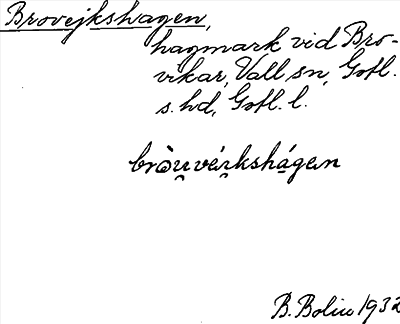 Brovejkshagen,
hagmark vid Bro-
vikar, Vall sn, Gotl.
s. hd, Gotl. l.
bròu̯véi̯kshágen
B. Bolin 1932